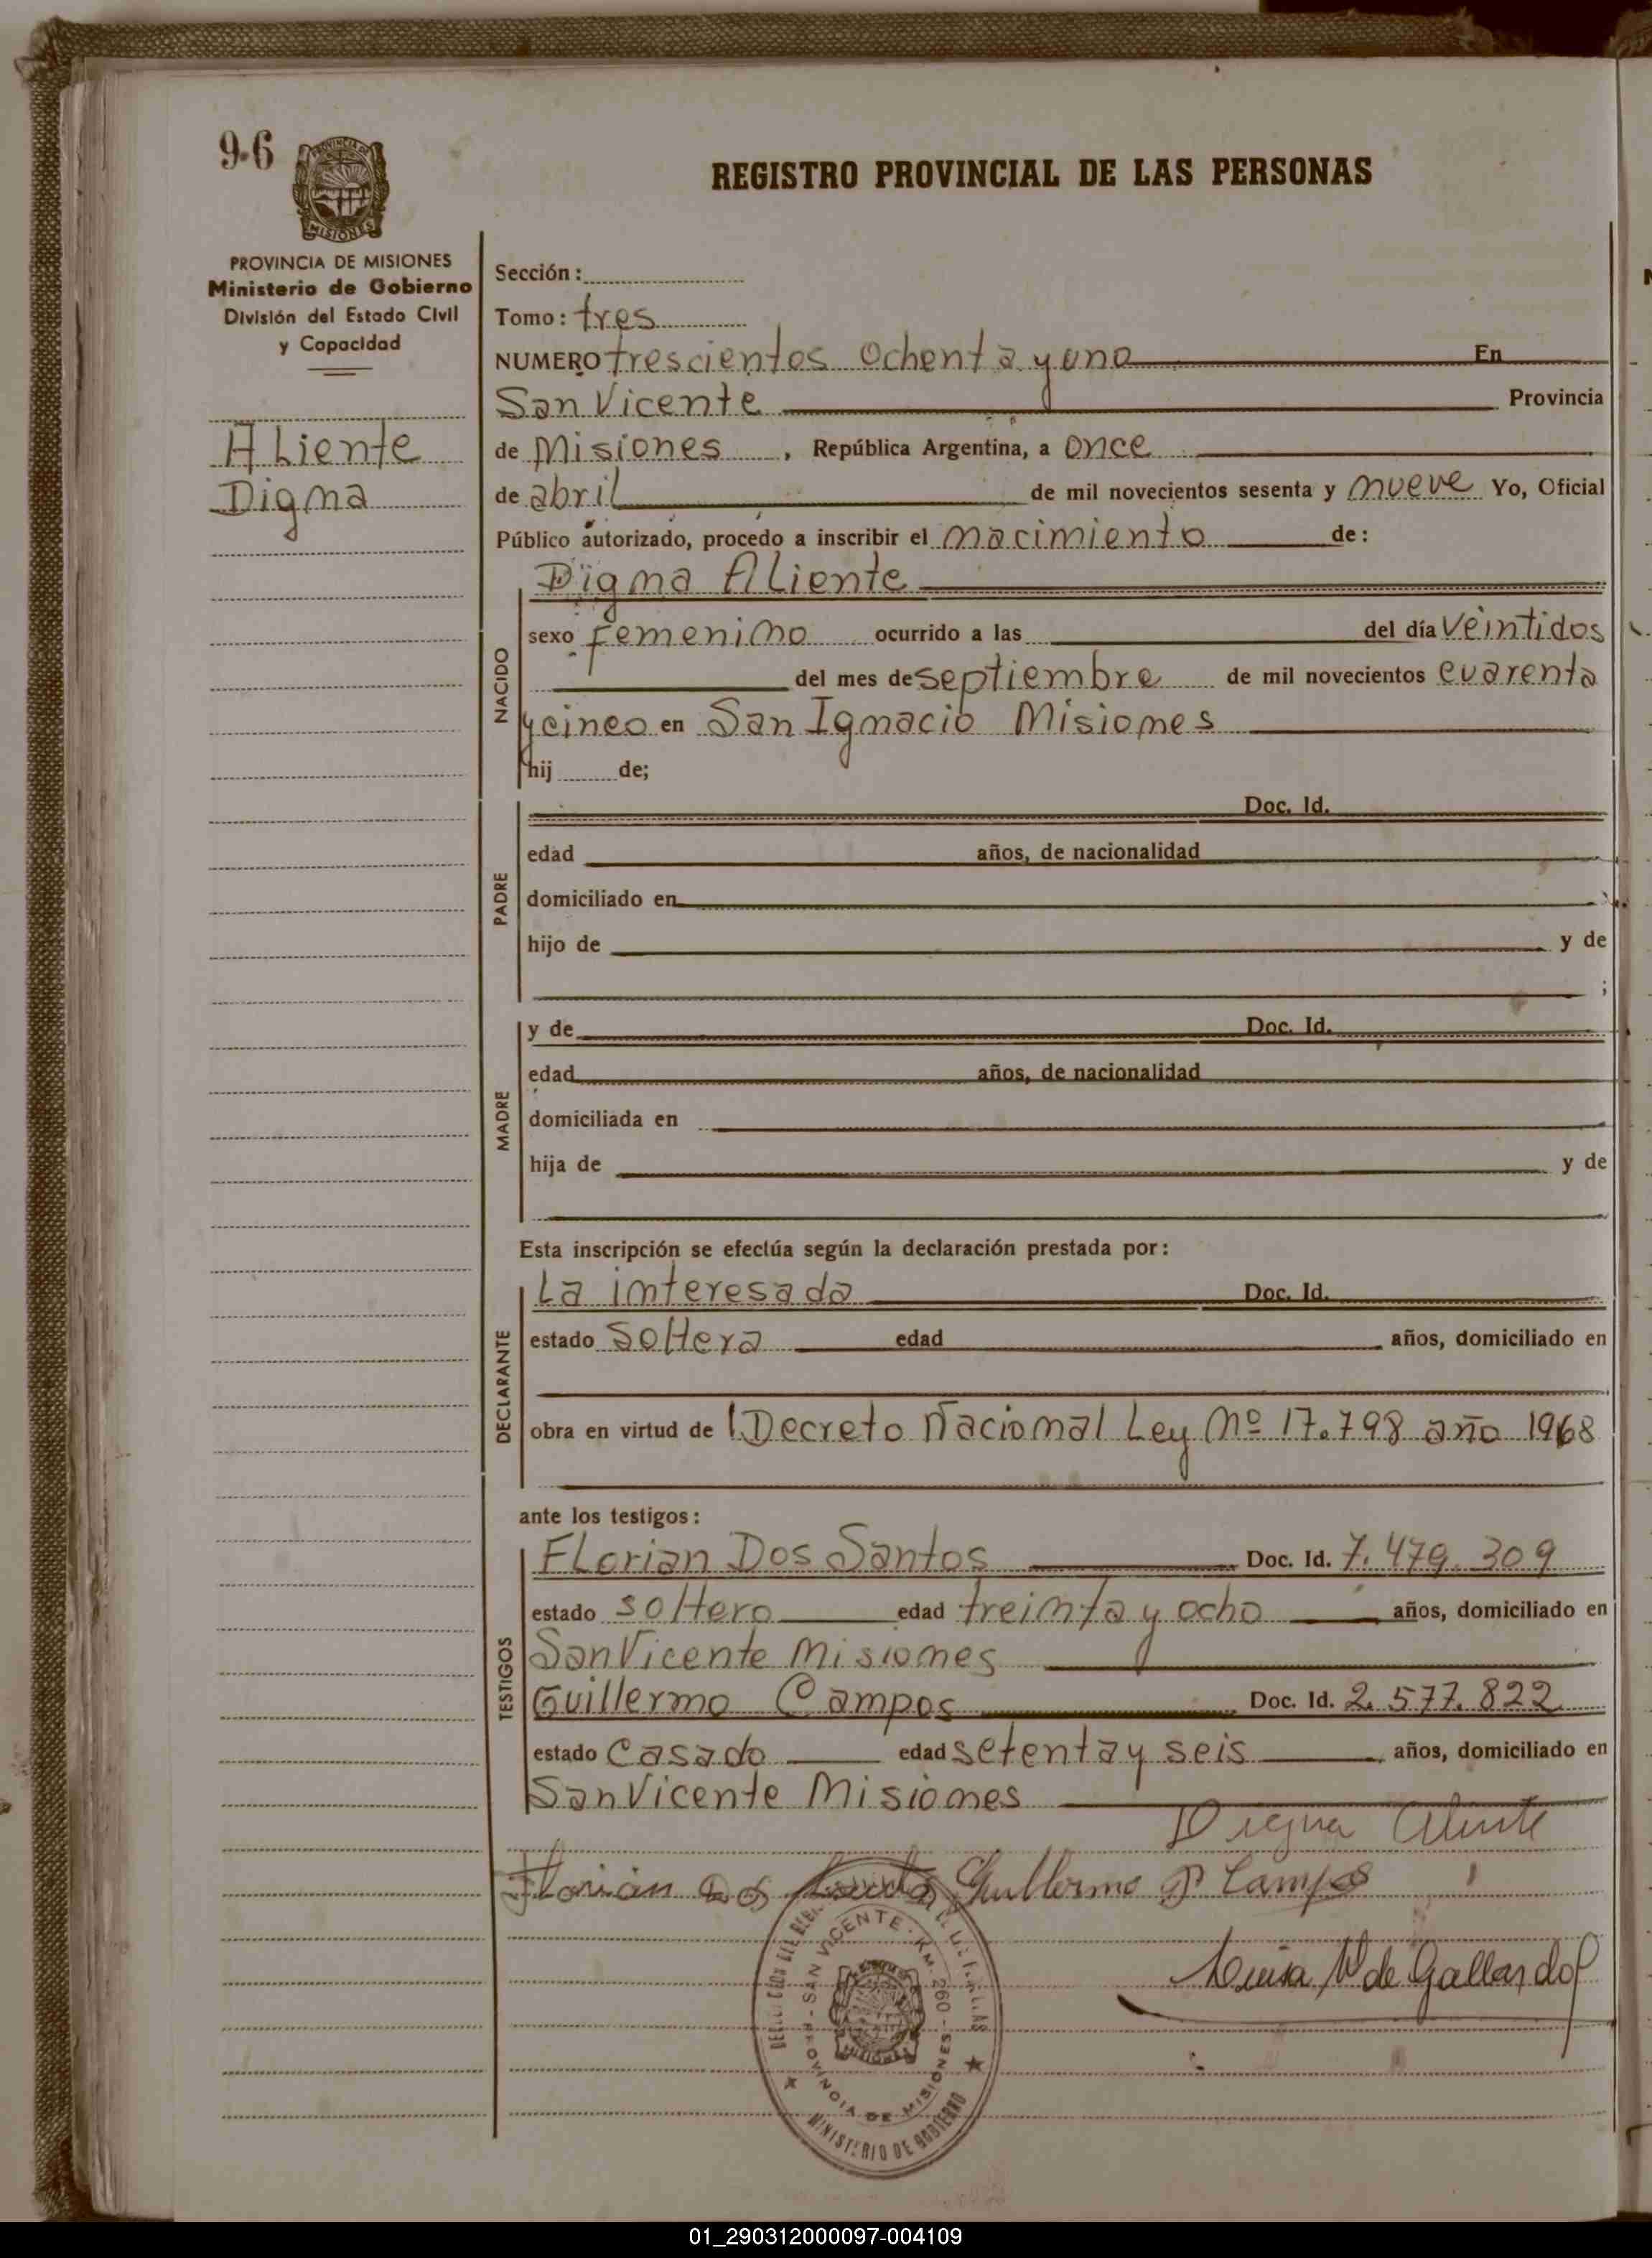 96
PROVINCIA DE MISIONES
Ministerio de Gobierno
División del Estado Civil
y Capacidad
ALiente
Digna
REGISTRO PROVINCIAL DE LAS PERSONAS
Sección:
Tomo: tres
NUMERO trescientos ochenta y uno En
San Vicente Provincia
de Misiones, República Argentina, a once
de abril de mil novecientos sesenta y nueve Yo, Oficial
Público autorizado, procedo a inscribir el nacimiento de:
Digna ALiente
NACIDO
sexo femenino ocurrido a las del día veintidos
del mes de septiembre de mil novecientos cuarenta
y cinco en San Ignacio Misiones
hij de;
PADRE
Doc. Id.
edad años, de nacionalidad
domiciliado en
hijo de y de
;
MADRE
y de Doc. Id.
edad años, de nacionalidad
domiciliada en
hija de y de
Esta inscripción se efectúa según la declaración prestada por:
DECLARANTE
La interesada Doc. Id.
estado soltera edad años, domiciliado en
obra en virtud de Decreto Nacional Ley Nº 17.798 año 1968
ante los testigos:
TESTIGOS
FLorian Dos Santos Doc. Id. 7.479.309
estado soltero edad treinta y ocho años, domiciliado en
San Vicente Misiones
Guillermo Campos Doc. Id. 2.577.822
estado Casado edad setenta y seis años, domiciliado en
San Vicente Misiones
Digna Aliente
Florián Dos Guillermo P Campos
Luisa de Gallardo
SAN VICENTE - KM. 260 - PROVINCIA DE MISIONES
MINISTERIO DE GOBIERNO
01_290312000097-004109